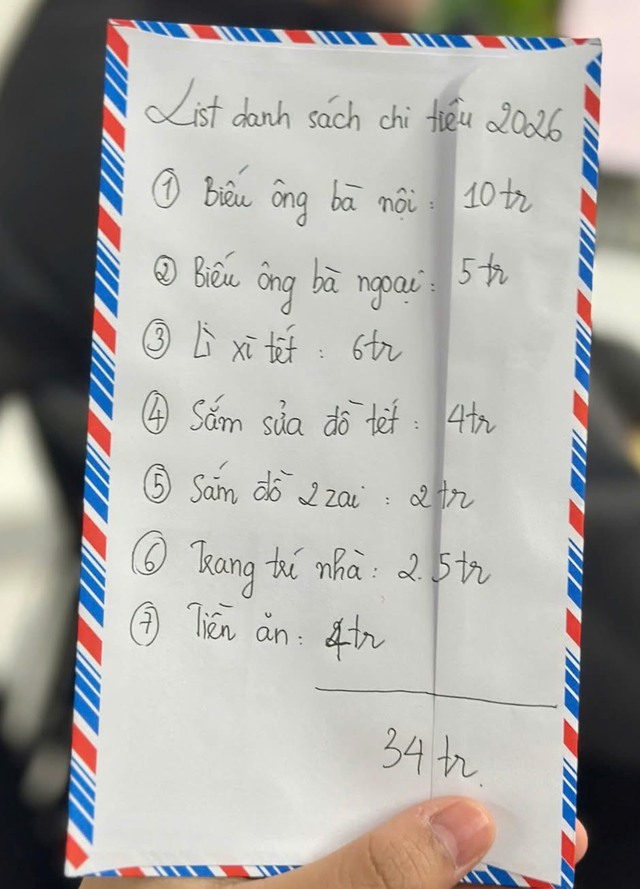 List danh sách chi tiêu 2026
① Biếu ông bà nội : 10tr
② Biếu ông bà ngoại : 5tr
③ Lì xì tết : 6tr
④ Sắm sửa đồ tết : 4tr
⑤ Sắm đồ 2 zai : 2tr
⑥ Trang trí nhà : 2.5tr
⑦ Tiền ăn : 4tr
34 tr.